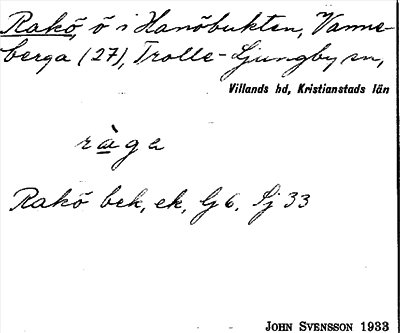 Rakö, ö i Hanöbukten, Vanne-
berga (27), Trolle-Ljungby sn,
Villands hd, Kristianstads län
ràga
Rakö bek, ek, G 6, Sj 33
JOHN SVENSSON 1933